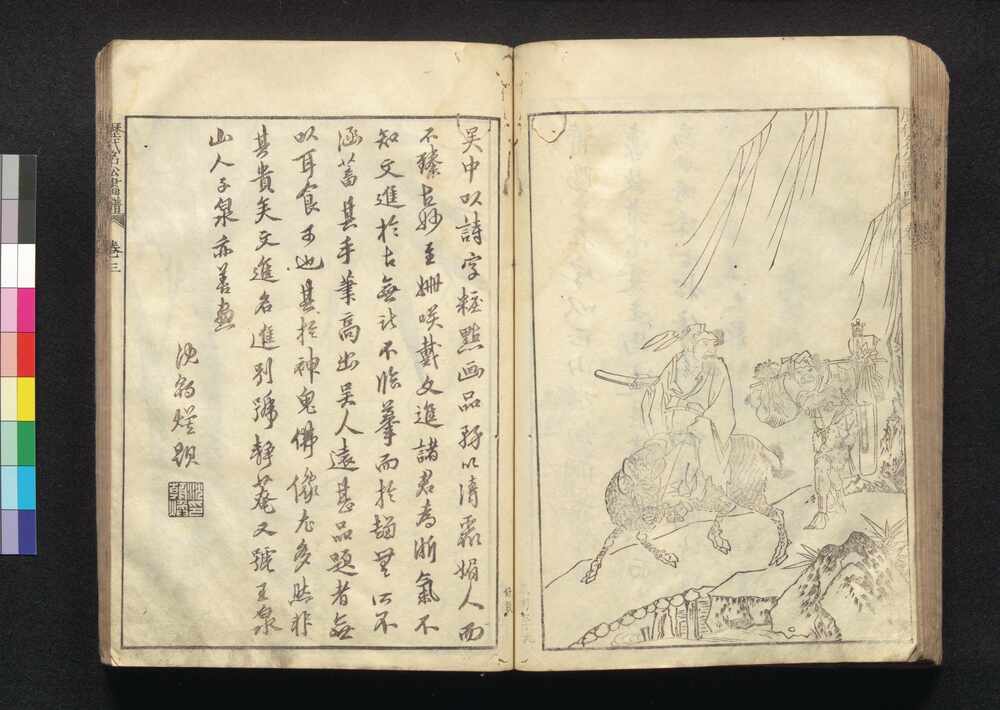 吳中以詩字粧點画品務以清麗媚人而
不臻古妙至姍咲戴文進諸君為浙氣不
知文進於古無所不臨摹而於趣無所不
涵蓄其手筆高出吳人遠甚品題者無
以耳食可也其於神鬼佛像尤多然非
其貴矣文進名進別號靜菴又號玉泉
山人子泉亦善畫
歷代名公畫譜 卷三